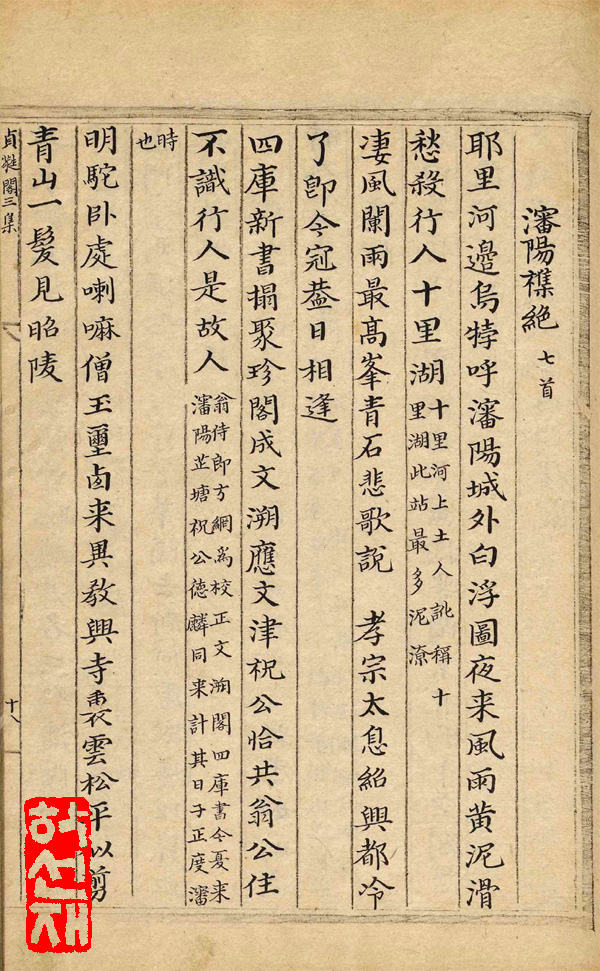 瀋陽襍絶 七首
耶里河邊烏特呼瀋陽城外白浮圖夜来風雨黄泥滑
愁殺行人十里湖
十里河上土人訛稱十
里湖此站最多泥潦
凄風闌雨最高峯青石悲歌説 孝宗太息紹興都冷
了卽今冠蓋日相逢
四庫新書搨聚珍閣成文溯應文津祝公恰共翁公住
不識行人是故人
翁侍郎方綱爲校正文溯閣四庫書今夏来
瀋陽芷塘祝公德麟同来計其日子正度瀋
時
也
明駝卧處喇嘛僧玉璽卤来異敎興寺裏雲松平似剪
青山一髮見昭陵
貞蕤閣三集
十八
허선재